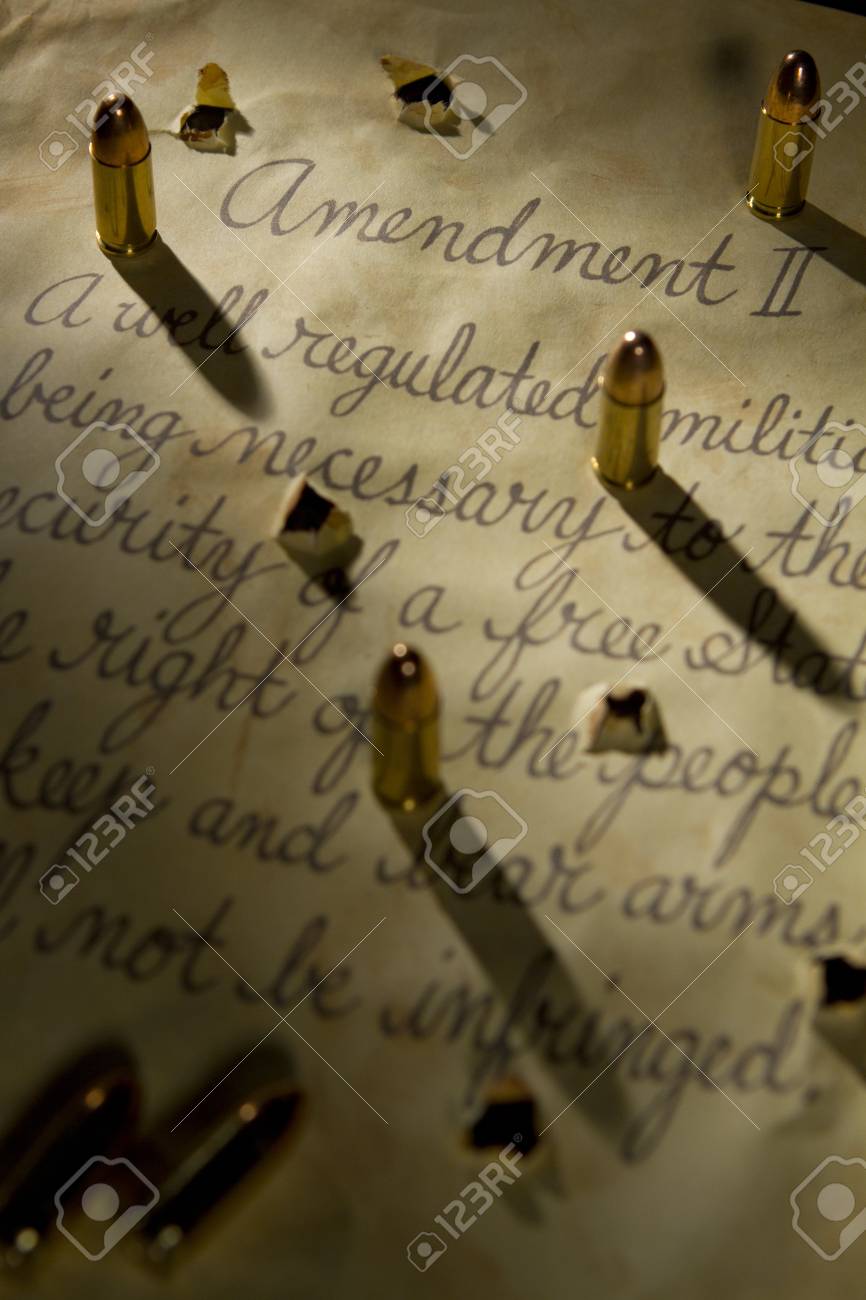 Amendment II
A well regulated militia
being necessary to the
ecurity of a free Stat
e right of the people
keep and bear arms
ll not be infringed.
123RF
123RF
123RF
123RF
123RF
123RF
123RF
123RF
123RF